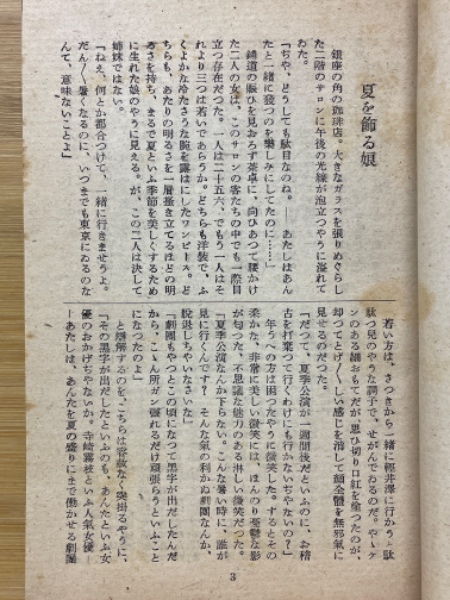 夏を飾る娘
銀座の角の珈琲店。大きなガラスを張りめぐらし
た二階のサロンに午後の光線が泡立つやうに溢れて
ゐた。
「ぢや、どうしても駄目なのね。――あたしはあん
たと一緒に發つのを樂しみにしてたのに……」
鋪道の賑ひを見おろす茶卓に、向ひあつて腰かけ
た二人の女は、このサロンの客たちの中でも一際目
立つ存在だつた。一人は二十五六、でもう一人はそ
れより三つは若いであらうか。どちらも洋裝で、ふ
くよかな冷たさうな腕を露はにしたワンピース。ど
ちらも、あたりの明るさを一層掻き立てるほどの明
るさを持ち、まるで夏といふ季節を美しくするため
に生れた娘のやうに見える。が、この二人は決して
姉妹ではない。
「ねえ、何とか都合つけて、一緒に行きませうよ。
だん／＼暑くなるのに、いつまでも東京にゐるのな
んて、意味ないことよ」
若い方は、さつきから一緒に輕井澤に行かうと駄
駄つ兒のやうな調子で、せがんでゐるのだ。やゝケ
ンのある細おもてだが、思ひ切り口紅を塗つたのが、
却つてとげ／＼しい感じを消して顏全體を無邪氣に
見せるのだつた。
「だつて、夏季公演が一週間後だといふのに、お稽
古を打棄つて行くわけにも行かないぢやないの？」
年うへの方は困つたやうに微笑した。するとその
柔かな、非常に美しい微笑には、ほんのり憂鬱な影
が匂つた。不思議な魅力のある淋しい微笑だつた。
「夏季公演なんか下らない。こんな暑い時に、誰が
見に行くんです？　そんな氣の利かぬ劇團なんか、
脫退しちやいなさいな」
「劇團もやつとこの頃になつて黑字が出だしたんだ
から、こゝん所ガン張れるだけ頑張らうといふこと
になつたのよ」
と辯解するのを、こちらは容赦なく突掛るやうに、
「その黑字が出だしたといふのも、あんたといふ女
優のおかげぢやないか。寺崎霧枝といふ人氣女優―
―あたしは、あんたを夏の盛りにまで働かせる劇團
3